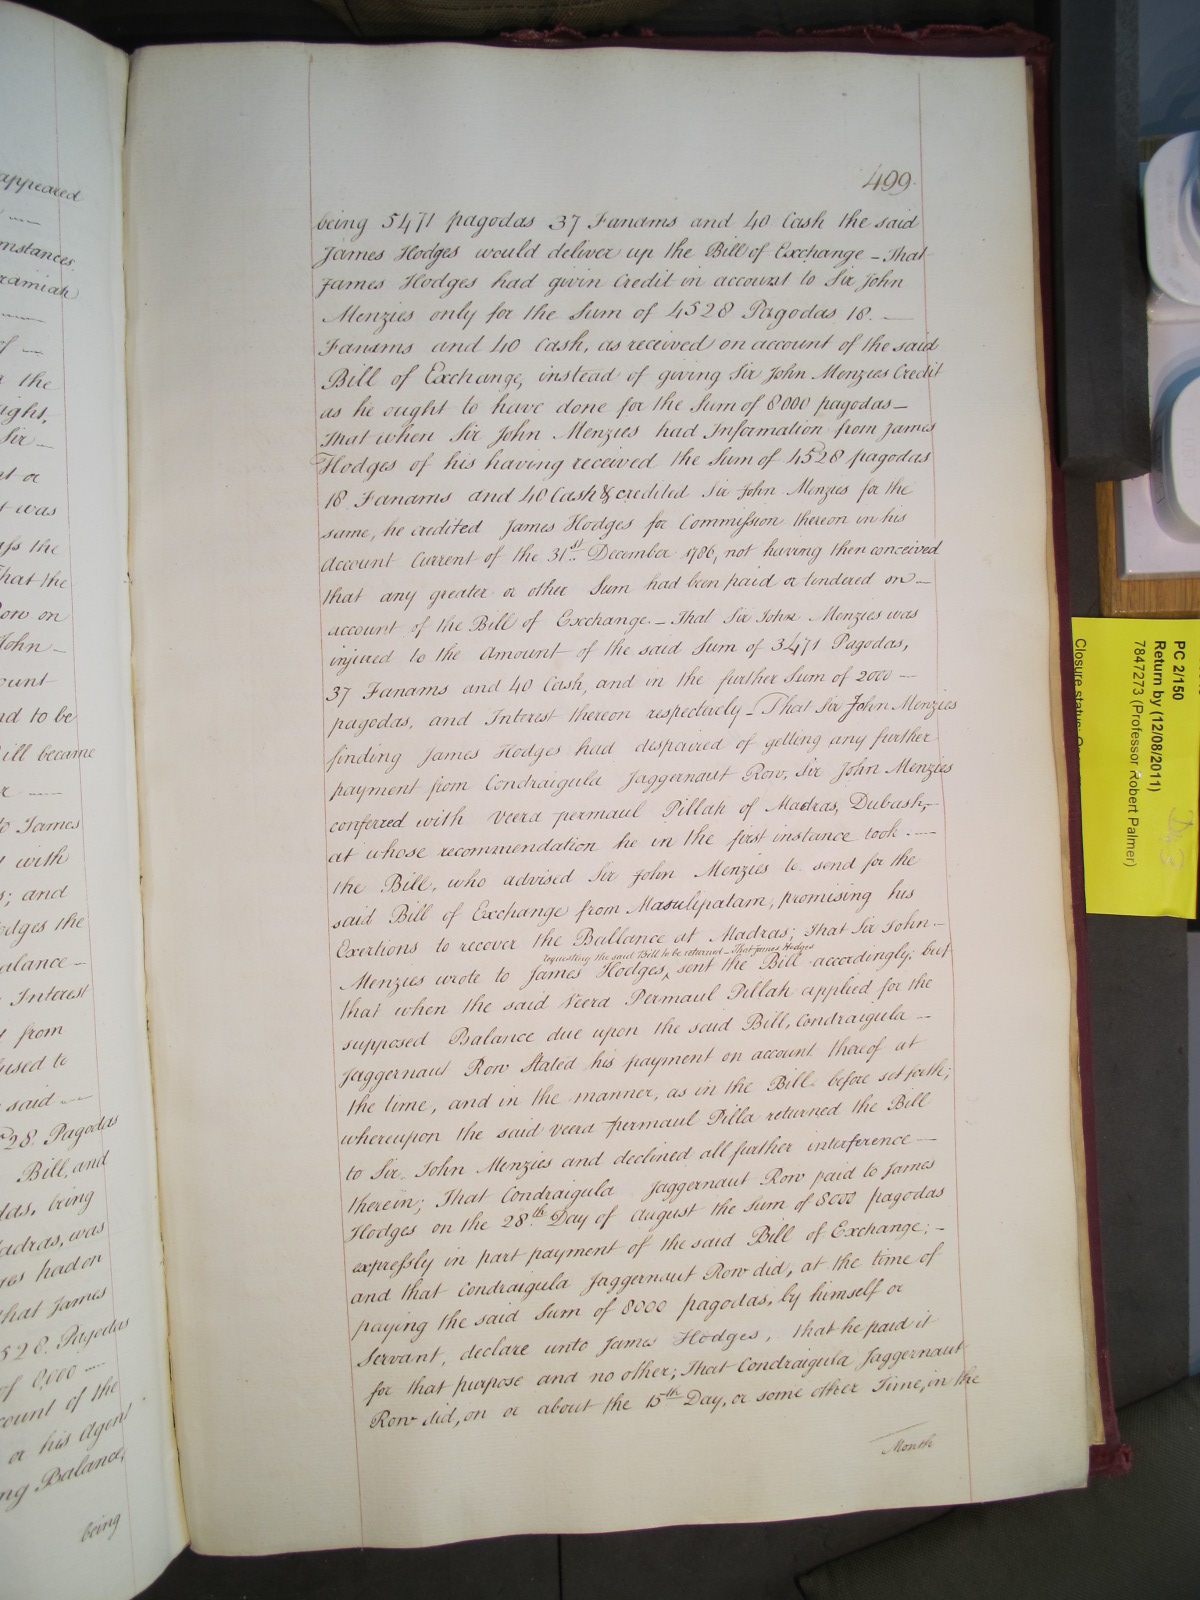 appeared
mstances
ramiah
of —
the
ight,
Sir —
nt or
t was
ass the
That the
Row on
John —
ount
nd to be
ill became
to James
with
s; and
odges the
alance —
Interest
from
fused to
said —
528. Pagodas
Bill, and
das, being
Madras, was
res had on
that James
528. Pagodas
of 8,000 —
count of the
or his Agent
ng Balance,
being
499.
being 5471 pagodas 37 Fanams and 40 Cash the said
James Hodges would deliver up the Bill of Exchange — That
James Hodges had givin Credit in account to Sir John
Menzies only for the Sum of 4528 Pagodas 18. —
Fanams and 40 Cash, as received on account of the said
Bill of Exchange, instead of giving Sir John Menzies Credit
as he ought to have done for the Sum of 8000 pagodas —
That when Sir John Menzies had Information from James
Hodges of his having received the Sum of 4528 pagodas
18 Fanams and 40 Cash & credited Sir John Menzies for the
same, he credited James Hodges for Commission thereon in his
Account Current of the 31st December 1786, not having then conceived
that any greater or other Sum had been paid or tendered on —
account of the Bill of Exchange. — That Sir John Menzies was
injured to the Amount of the said Sum of 3471 Pagodas,
37 Fanams and 40 Cash, and in the further Sum of 2000 —
pagodas, and Interest thereon respectively — That Sir John Menzies
finding James Hodges had despaired of getting any further
payment from Condraigula Jaggernaut Row, Sir John Menzies
conferred with Veera permaul Pillah of Madras, Dubash, —
at whose recommendation he in the first instance took . —
the Bill, who advised Sir John Menzies to send for the
said Bill of Exchange from Masulipatam, promising his
Exertions to recover the Ballance at Madras; That Sir John —
requesting the said Bill to be returned — That James Hodges
Menzies wrote to James Hodges, ‸ sent the Bill accordingly; but
that when the said Veera Permaul Pillah applied for the
supposed Balance due upon the said Bill, Condraigula —
Jaggernaut Row Stated his payment on account thereof at
the time, and in the manner, as in the Bill before set forth;
whereupon the said Veera permaul Pilla returned the Bill
to Sir John Menzies and declined all further interference —
therein; That Condraigula Jaggernaut Row paid to James
Hodges on the 28th Day of August the Sum of 8000 pagodas
expressly in part payment of the said Bill of Exchange; —
and that Condraigula Jaggernaut Row did, at the time of
paying the said Sum of 8000 pagodas, by himself or
Servant, declare unto James Hodges, that he paid it
for that purpose and no other; That Condraigula Jaggernaut
Row did, on or about the 15th Day, or some other Time, in the
Month
PC 2/150
Return by (12/08/2011)
7847273 (Professor Robert Palmer)
Closure status: